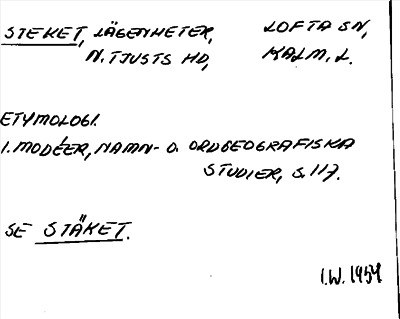 STEKET, LÄGENHETER, LOFTA SN,
N. TJUSTS HD, KALM. L.
ETYMOLOGI.
I. MODÉER, NAMN- O. ORDGEOGRAFISKA
STUDIER, S. 117.
SE STÄKET.
I.W. 1959